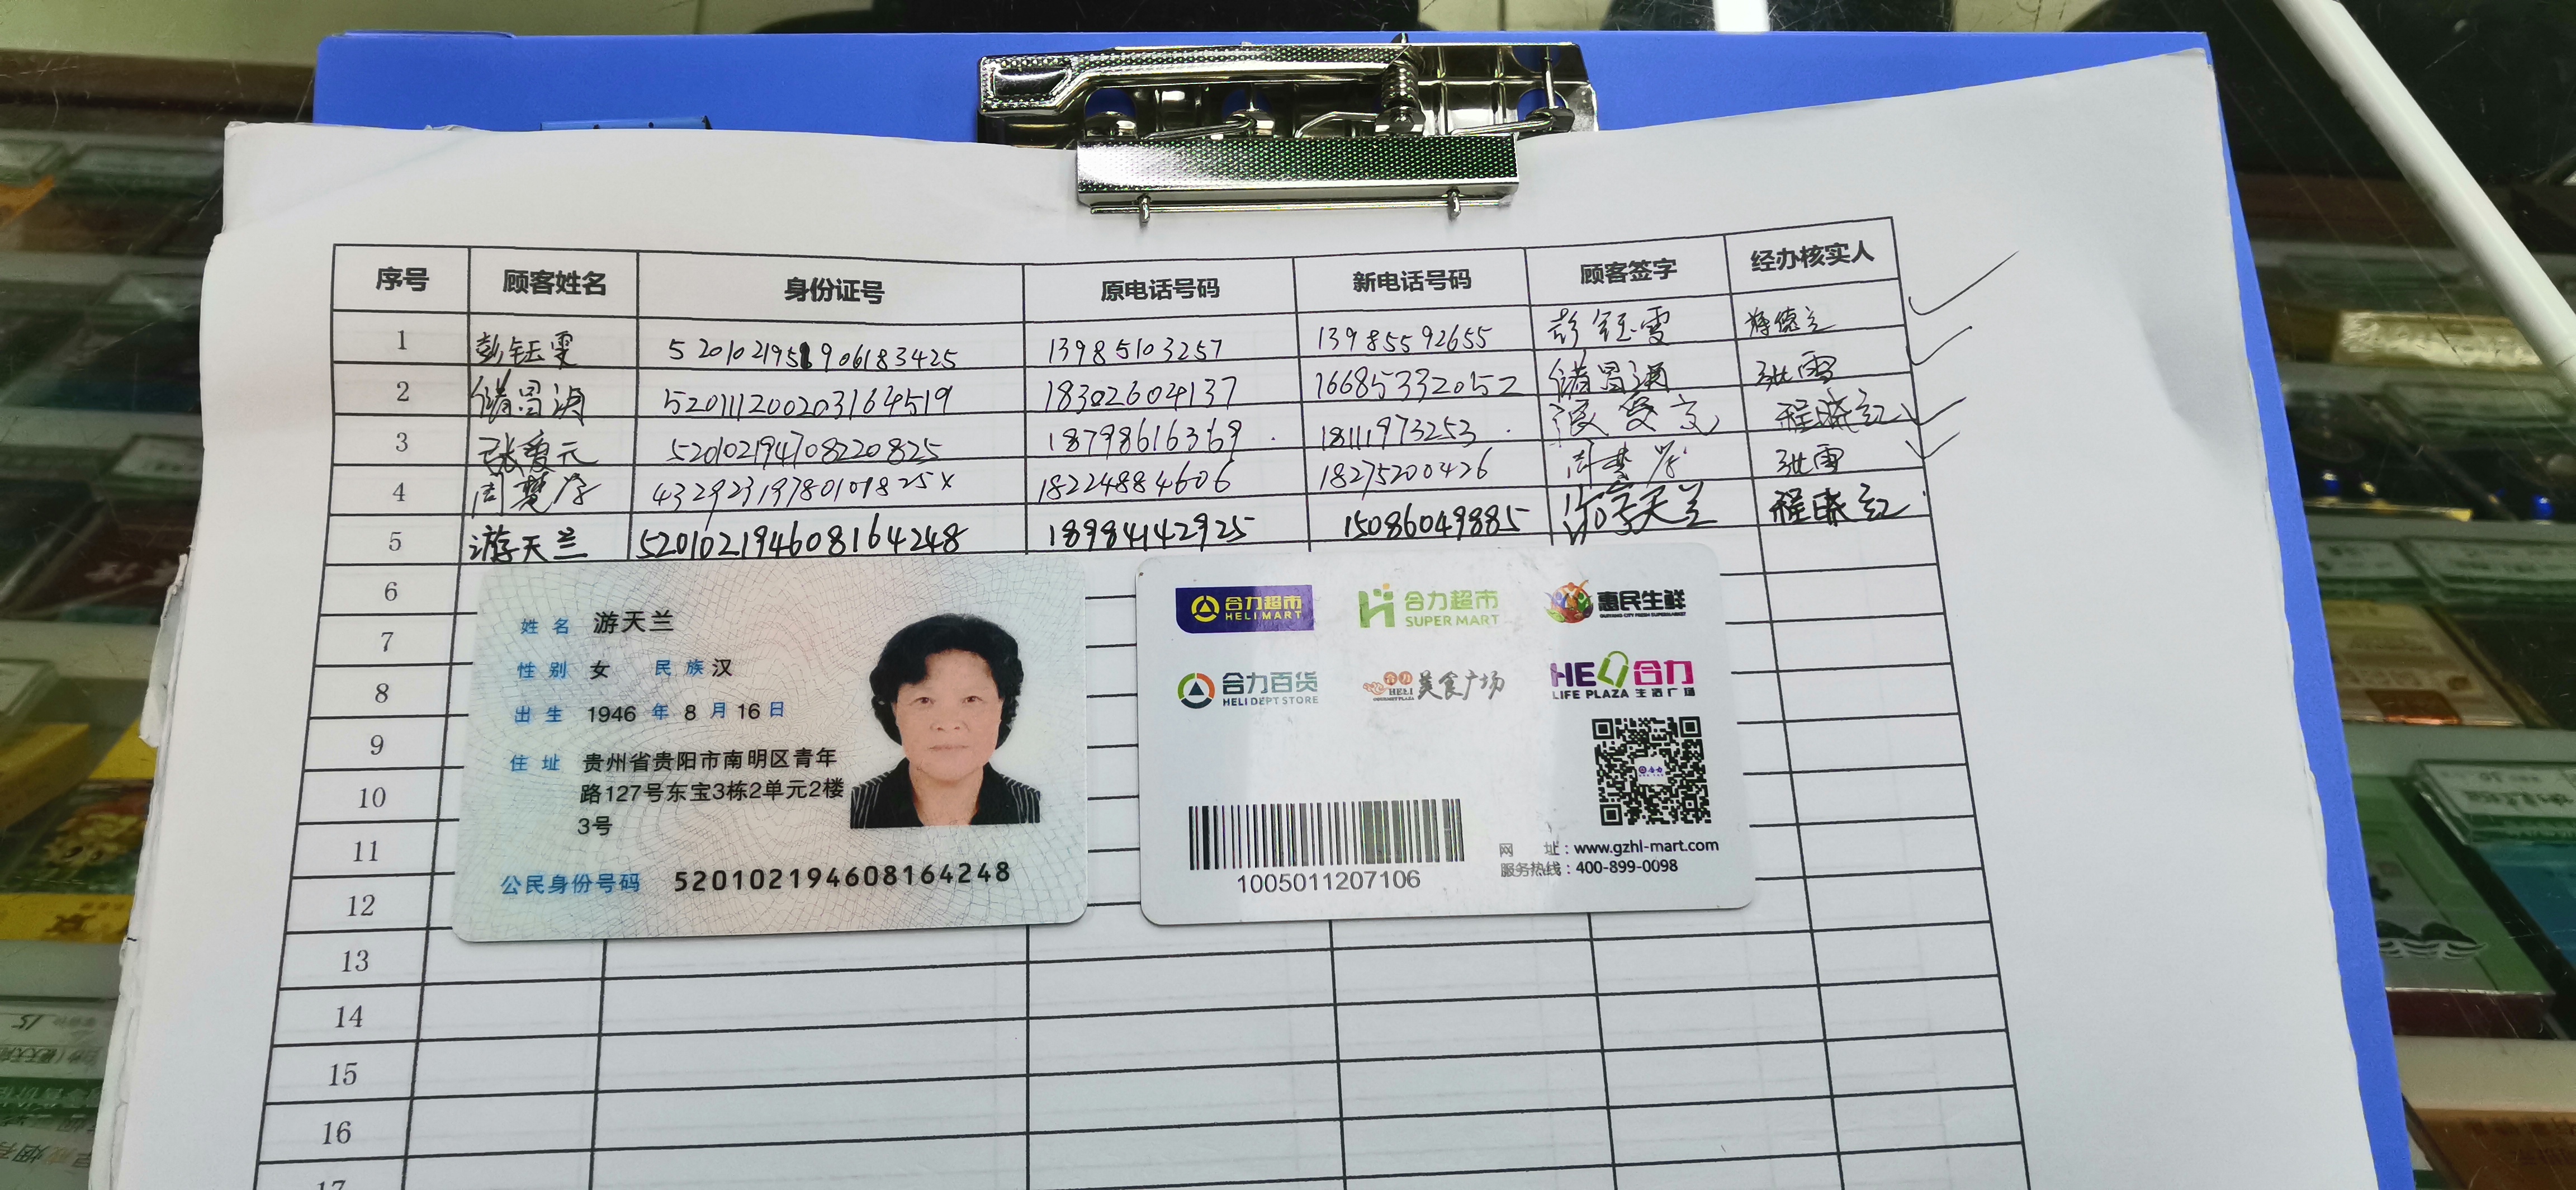 序号 顾客姓名 身份证号 原电话号码 新电话号码 顾客签字 经办核实人
1 彭钰雯 13985103257 13985592655 彭钰雯
2 520111200203164519 18302604137 16685332052 张雪
3 张爱元 520102194708220825 18798616369 18111973253 程晓红
4 43292319780101825X 18224884606 18275200426 张雪
5 游天兰 520102194608164248 18984142925 15086049885 游天兰 程晓红
6
7
8
9
10
11
12
13
14
15
16
17
姓名 游天兰
性别 女 民族 汉
出生 1946 年 8 月 16 日
住址 贵州省贵阳市南明区青年
路127号东宝3栋2单元2楼
3号
公民身份号码 520102194608164248
合力超市 HELI MART
合力超市 SUPER MART
惠民生鲜
合力百货 HELI DEPT STORE
合力 HELI 美食广场
HELI 合力 LIFE PLAZA 生活广场
1005011207106
网 址：www.gzhl-mart.com
服务热线：400-899-0098